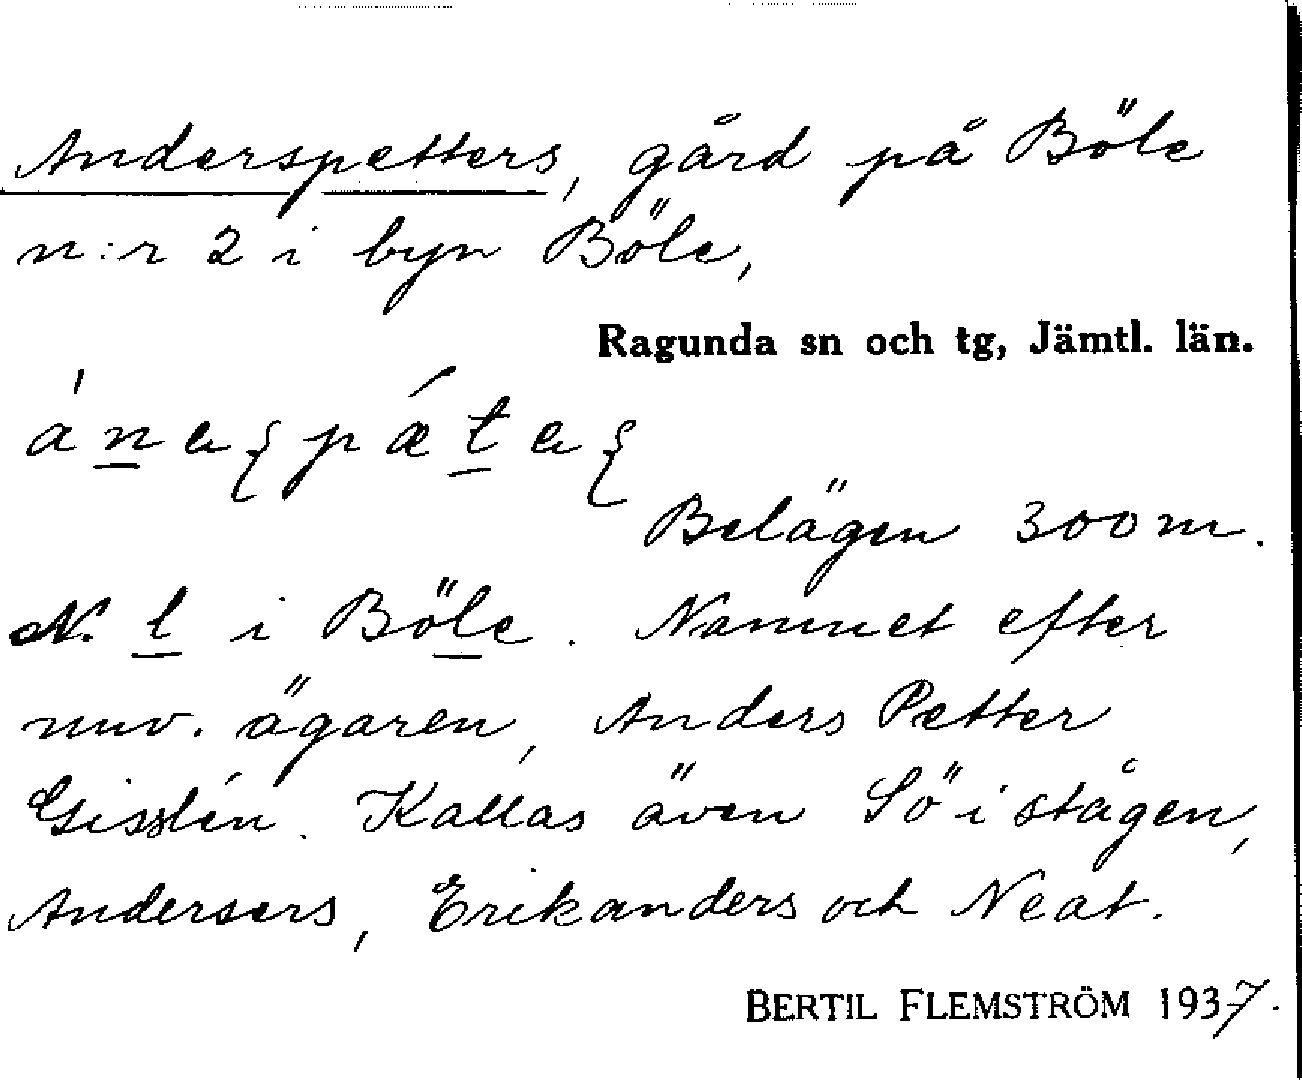 Anderspetters, gård på Böle
n:r 2 i byn Böle,
Ragunda sn och tg, Jämtl. län.
Belägen 300 m.
N. l i Böle. Namnet efter
nuv. ägaren, Anders Petter
Gisslén. Kallas även Sö i stågen,
Andersers, Erikanders och Neat.
BERTIL FLEMSTRÖM 1937.